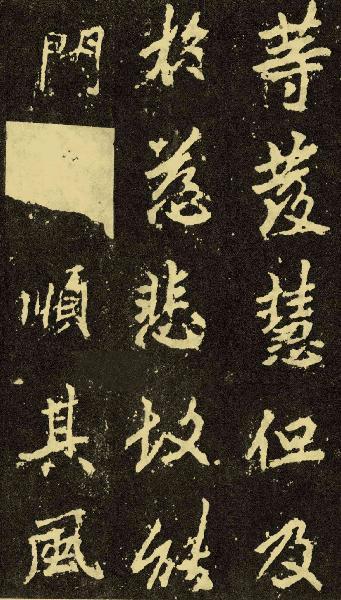 等發慧但及
於慈悲故能
門順其風